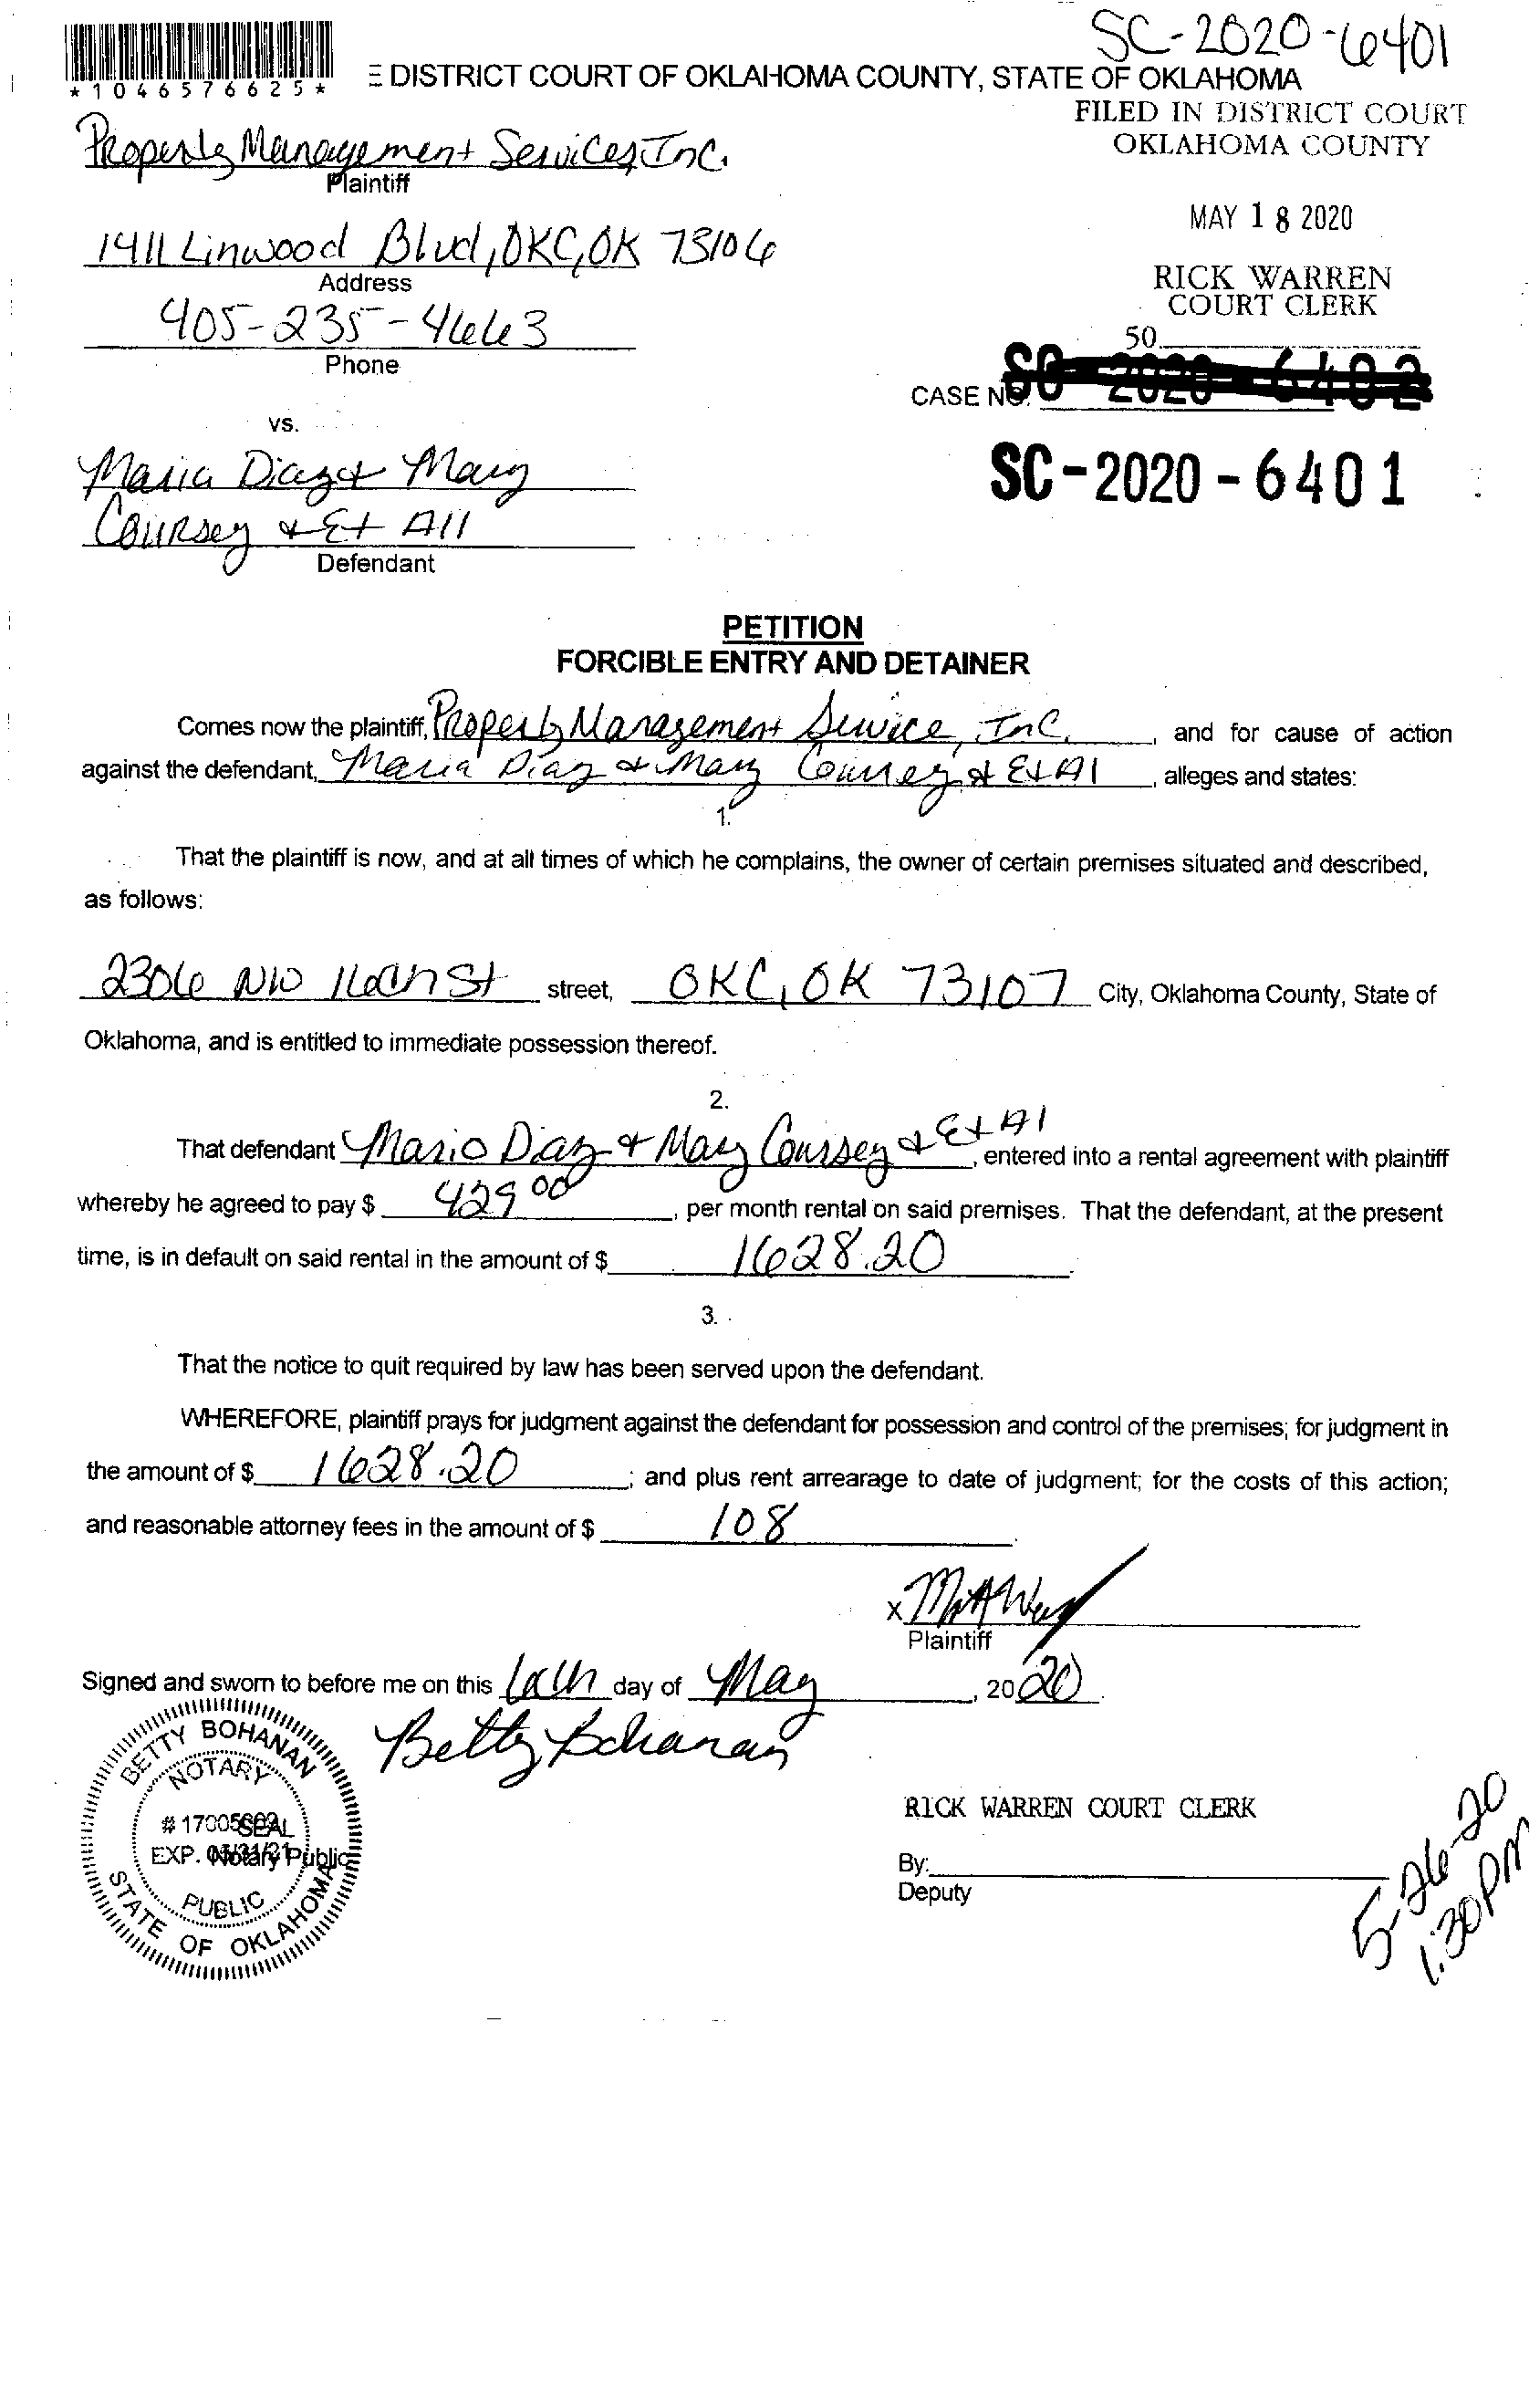 SC-2020-6401
*1046576625*
E DISTRICT COURT OF OKLAHOMA COUNTY, STATE OF OKLAHOMA
FILED IN DISTRICT COURT
OKLAHOMA COUNTY
Property Management Services, Inc.
Plaintiff
MAY 18 2020
1411 Linwood Blvd, OKC, OK 73106
Address
RICK WARREN
COURT CLERK
405-235-4663
Phone
50
CASE NO. SC-2020-6402
vs.
SC-2020-6401
Maria Diaz & Mary
Coursey & Et All
Defendant
PETITION
FORCIBLE ENTRY AND DETAINER
Comes now the plaintiff, Property Management Service, Inc. , and for cause of action
against the defendant, Maria Diaz & Mary Coursey & Et Al , alleges and states:
1.
That the plaintiff is now, and at all times of which he complains, the owner of certain premises situated and described,
as follows:
2306 NW 16th St street, OKC, OK 73107 City, Oklahoma County, State of
Oklahoma, and is entitled to immediate possession thereof.
2.
That defendant Mario Diaz & Mary Coursey & Et Al , entered into a rental agreement with plaintiff
whereby he agreed to pay $ 429 00 , per month rental on said premises. That the defendant, at the present
time, is in default on said rental in the amount of $ 1628.20 .
3.
That the notice to quit required by law has been served upon the defendant.
WHEREFORE, plaintiff prays for judgment against the defendant for possession and control of the premises; for judgment in
the amount of $ 1628.20 ; and plus rent arrearage to date of judgment; for the costs of this action;
and reasonable attorney fees in the amount of $ 108 .
X
Plaintiff
Signed and sworn to before me on this day of May , 2020.
Betty Bohanan
BETTY BOHANAN
NOTARY
# 17005602
SEAL
EXP.
Notary Public
PUBLIC
STATE OF OKLAHOMA
RICK WARREN COURT CLERK
By:
Deputy
5-26-20
1:30 PM